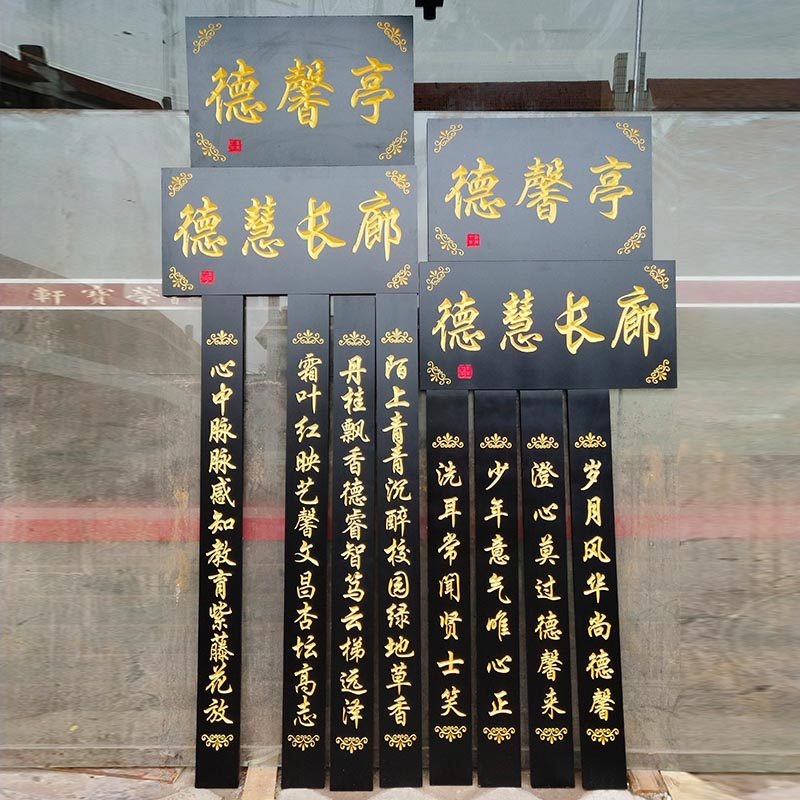 德馨亭
德慧长廊
德馨亭
德慧长廊
荣宝轩
陌上青青沉醉校园绿地草香
丹桂飘香德睿智笃云梯远泽
霜叶红映艺馨文昌杏坛高志
心中脉脉感知教育紫藤花放
岁月风华尚德馨
澄心莫过德馨来
少年意气唯心正
洗耳常闻贤士笑